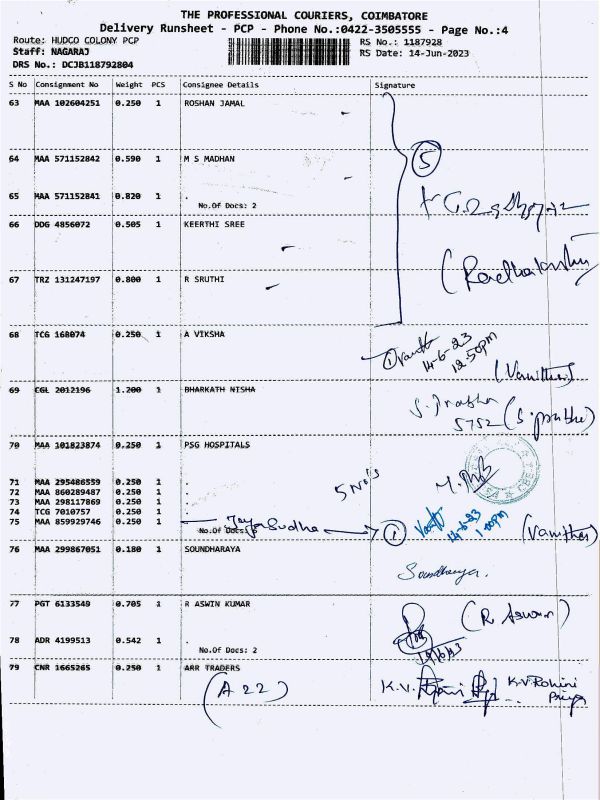 THE PROFESSIONAL COURIERS, COIMBATORE
Delivery Runsheet - PCP - Phone No.:0422-3505555 - Page No.:4
Route: HUDCO COLONY PCP
RS No.: 1187928
Staff: NAGARAJ
RS Date: 14-Jun-2023
DRS No.: DCJB118792804
S No Consignment No Weight PCS Consignee Details Signature
63 MAA 102604251 0.250 1 ROSHAN JAMAL
5
64 MAA 571152842 0.590 1 M S MADHAN
65 MAA 571152841 0.820 1 .
No.Of Docs: 2
66 DDG 4856072 0.505 1 KEERTHI SREE
67 TRZ 131247197 0.800 1 R SRUTHI
68 TCG 168074 0.250 1 A VIKSHA
1 14-6-23
12.50pm
(Vanitha)
69 CGL 2012196 1.200 1 BHARKATH NISHA
S. Prabha
5752
70 MAA 101823874 0.250 1 PSG HOSPITALS
71 MAA 295486559 0.250 1 .
72 MAA 860289487 0.250 1 .
73 MAA 298117869 0.250 1 .
74 TCG 7010757 0.250 1 .
75 MAA 859929746 0.250 1 .
5 No's
JayaSudha 1 14-6-23
1.00pm
(Vanitha)
76 MAA 299867051 0.180 1 SOUNDHARAYA
77 PGT 6133549 0.705 1 R ASWIN KUMAR
(R Aswin)
78 ADR 4199513 0.542 1 .
No.Of Docs: 2
79 CNR 1665265 0.250 1 ARR TRADERS
(A 22)
K.V. Rohini
Priya